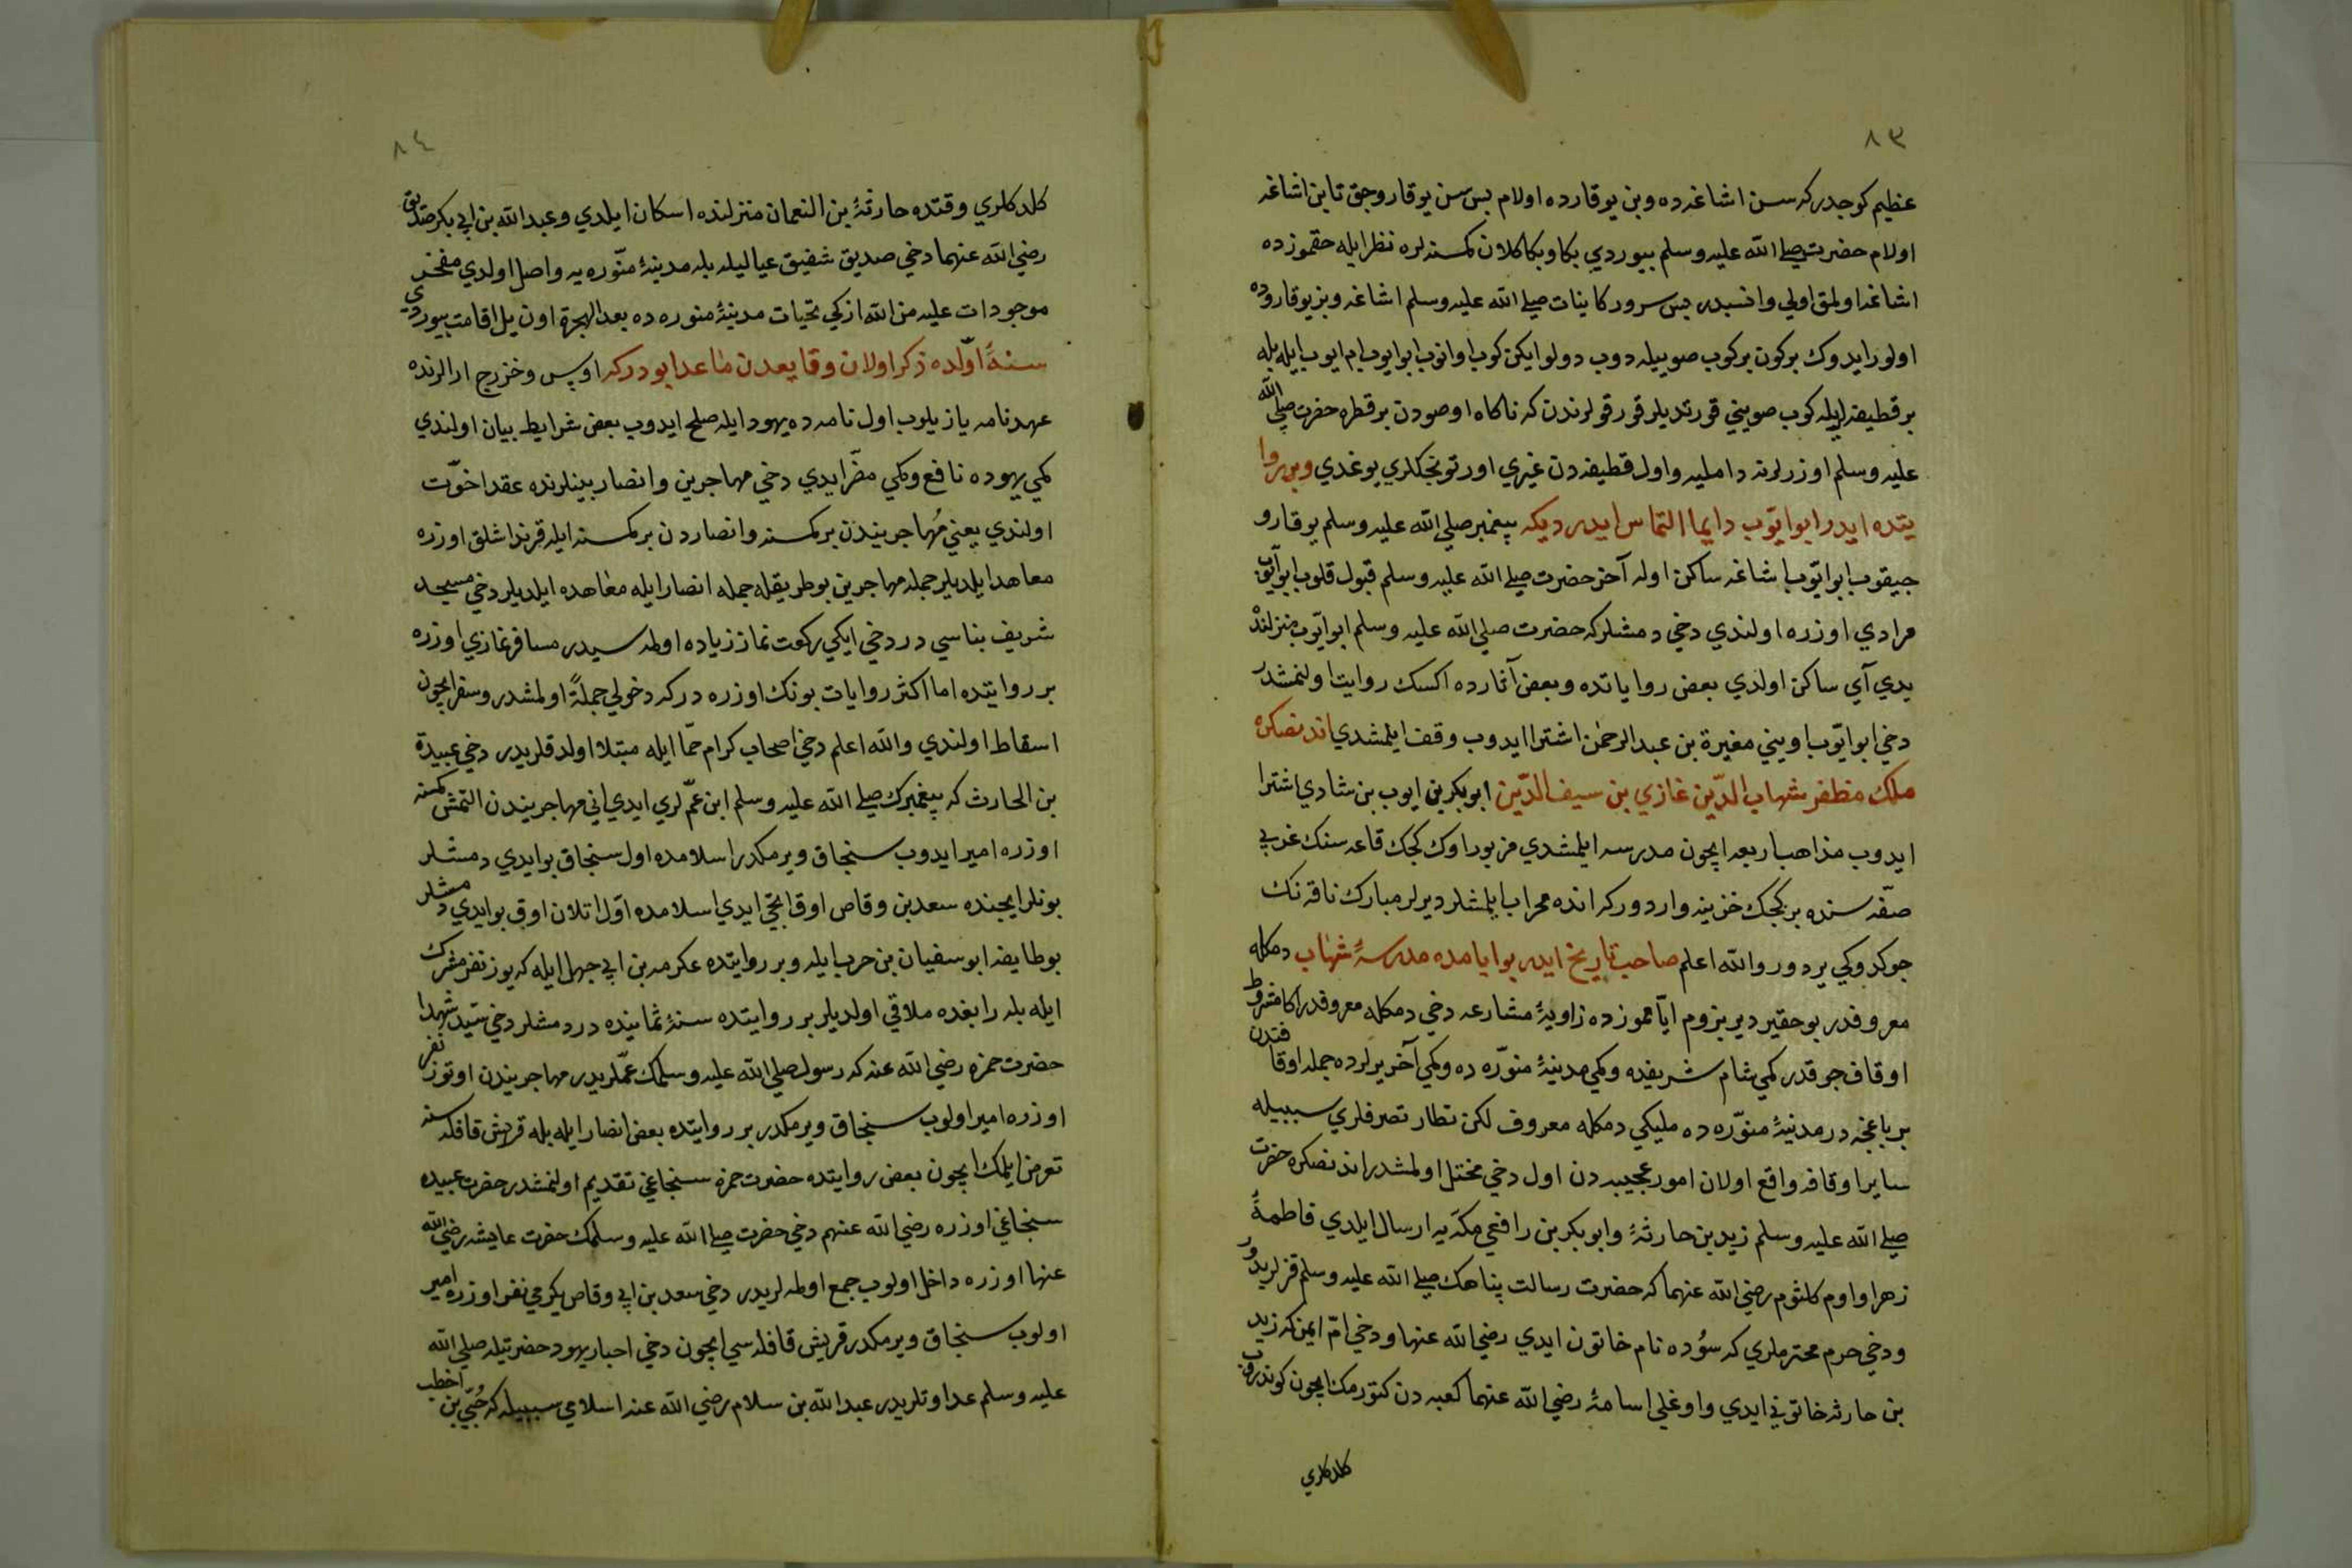 ٨٣
عظيم كوجدركه سن اشاغه ده وبن يوقارده اولام بس سن يوقارو جق تا بن اشاغه
اولام حضرت صلى الله عليه وسلم بيوردي بكا وبكا كلان كمسنه لره نظر ايله حقموزده
اشاغه اولمق اولي وانسبدر بس سرور كاينات صلى الله عليه وسلم اشاغه وبز يوقاروده
اولور ايدوك بر كون بر كوب صوييله دوب دولو ايكن كوب اوانوب ابو ايوب ام ايوب ايله بله
بر قطيفه ايله كوب صويني قورتديلر قورقولرندن كه ناكاه اوصودن بر قطره حضرت صلى الله
عليه وسلم اوزرلرنه داملیه واول قطيفه دن غيري اورتونجكلري يوغدي وبر روا
يتده ايدر ابو ايوب دايما التماس ايدر ديكه پيغمبر صلى الله عليه وسلم يوقارو
جيقوب ابو ايوب اشاغه ساكن اوله آخر حضرت صلى الله عليه وسلم قبول قلوب ابو ايوب
مرادي اوزره اولندي دخي دمشلركه حضرت صلى الله عليه وسلم ابو ايوب منزلنده
يدي آي ساكن اولدي بعض روايانده وبعض آثارده اكسك روايت اولنمشدر
دخي ابو ايوب اويني مغيرة بن عبد الرحمن اشترا ايدوب وقف ايلمشدي اندنصكره
ملك مظفر شهاب الدين غازي بن سيف الدين ابو بكر بن ايوب بن شادي اشترا
ايدوب مذاهب اربعه ايچون مدرسه ايلمشدي مزبور اوك كجك قاعه سنك غربي
صفه سنده بر كجك خزينه واردوركه انده محراب ايلمشلر ديرلر مبارك ناقه نك
جوكدوكي يردور والله اعلم صاحب تاريخ ايدر بو ايامده مدرسهٔ شهاب دمكله
معروفدر بو حقير دير بزوم ايامموزده زاويهٔ مشارعه دخي دمكله معروفدر اكا مشروط
اوقاف جوقدر كمي شام شريفده وكمي مدينهٔ منوره ده وكمي آخر يرلرده جمله اوقافندن
بر باغچه در مدينهٔ منوره ده مليكي دمكله معروف لكن نظار تصرفلري سببيله
ساير اوقافه واقع اولان امور عجيبه دن اول دخي مختل اولمشدر اندنصكره حضرت
صلى الله عليه وسلم زيد بن حارثهٔ وابو بكر بن رافعي مكه يه ارسال ايلدي فاطمهٔ
زهرا واوم كلثوم رضي الله عنهما كه حضرت رسالت پناهك صلى الله عليه وسلم قزلريدور
ودخي حرم محترملري كه سوده نام خاتون ايدي رضي الله عنها ودخي ام ايمن كه زيد
بن حارثه خاتوني ايدي واوغلي اسامهٔ رضي الله عنهما كعبه دن كتورمك ايچون كوندروب
كلدكلري
٨٤
كلدكلري وقتده حارثهٔ بن النعمان منزلنده اسكان ايلدي وعبد الله بن ابي بكر صديق
رضي الله عنهما دخي صديق شفيق عياليله بله مدينهٔ منوره يه واصل اولدي مفخر
موجودات عليه من الله ازكي تحيات مدينهٔ منوره ده بعد الهجرة اون يل اقامت بيوردي
سنهٔ اولده ذكر اولان وقايعدن ماعدا بودركه اوس وخزرج ارالرنده
عهدنامه يازيلوب اول نامه ده يهود ايله صلح ايدوب بعض شرايط بيان اولندي
كمي يهوده نافع وكمي مضر ايدي دخي مهاجرين وانصار بينلرنده عقد اخوت
اولندي يعني مهاجريندن بر كمسنه وانصاردن بر كمسنه ايله قرنداشلق اوزره
معاهد ايلديلر جمله مهاجرين بو طريقله جمله انصار ايله معاهده ايلديلر دخي مسجد
شريف بناسي در دخي ايكي ركعت نماز زياده اولمه سيدر مسافر نمازي اوزره
بر روايتده اما اكثر روايات بونك اوزره دركه دخولي جملة اولمشدر وسفر ايچون
اسقاط اولندي والله اعلم دخي اصحاب كرام حما ايله مبتلا اولدقلريدر دخي عبيدة
بن الحارث كه پيغمبرك صلى الله عليه وسلم ابن عملري ايدي اني مهاجريندن التمش كمسنه
اوزره امير ايدوب سنجاق ويرمكدر اسلامده اول سنجاق بو ايدي دمشلر
بونلر ايجنده سعد بن وقاص اوقانجي ايدي اسلامده اول اتلان اوق بو ايدي دمشلر
بو طايفه ابو سفيان بن حرب ايله وبر روايتده عكرمه بن ابي جهل ايله كه يوز نفر مشرك
ايله بله رابغده ملاقي اولديلر بر روايتده سنهٔ ثمانينده در دمشلر دخي سيد شهدا
حضرت حمزه رضي الله عنه كه رسول صلى الله عليه وسلمك عملريدر مهاجريندن اوتوز نفر
اوزره امير اولوب سنجاق ويرمكدر بر روايتده بعض انصار ايله بله قريش قافله سنه
تعرض ايلمك ايچون بعض روايتده حضرت حمزه سنجاغي تقديم اولنمشدر حضرت عبيده
سنجاغي اوزره رضي الله عنهم دخي حضرت صلى الله عليه وسلمك حضرت عايشه رضي الله
عنها اوزره داخل اولوب جمع اولمه لريدر دخي سعد بن ابي وقاص يكرمي نفر اوزره امير
اولوب سنجاق ويرمكدر قريش قافله سي ايچون دخي احبار يهود حضرتيله صلى الله
عليه وسلم عداوتلريدر عبد الله بن سلام رضي الله عنه اسلامي سببيله كه حيي بن اخطب